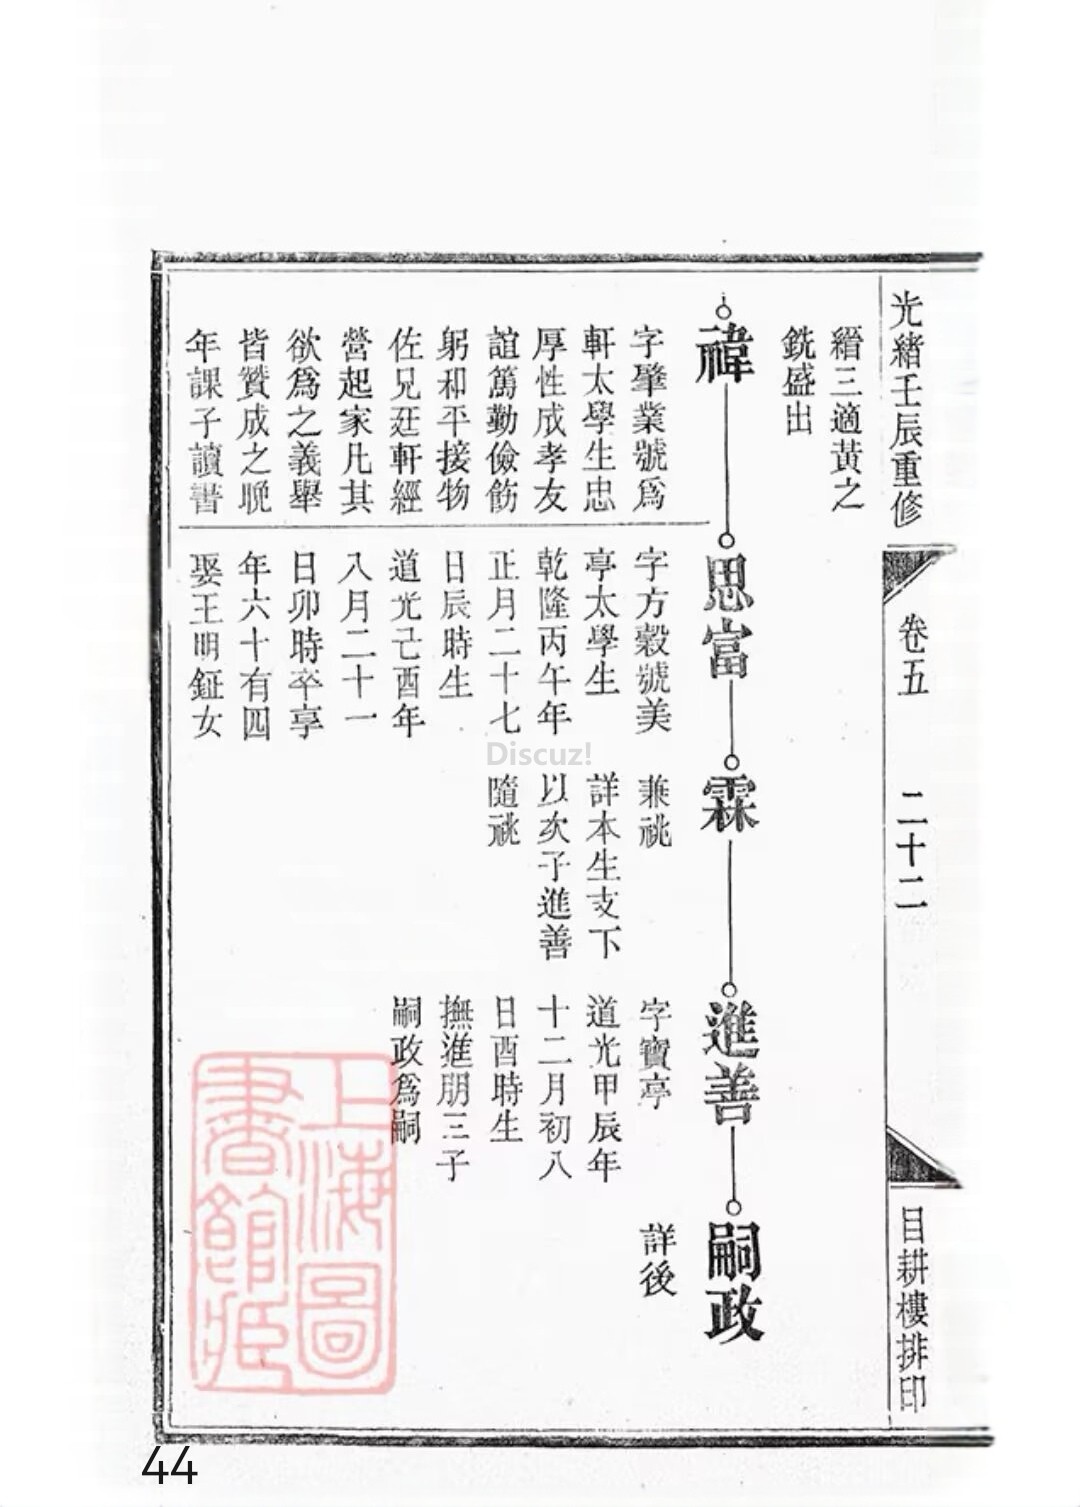 光緒壬辰重修
卷五
二十二
目耕樓排印
縉三適黃之
銑盛出
禕
字肇業號爲
軒太學生忠
厚性成孝友
誼篤勤儉飭
躬和平接物
佐兄廷軒經
營起家凡其
欲爲之義舉
皆贊成之晚
年課子讀書
思富
字方穀號美
亭太學生
乾隆丙午年
正月二十七
日辰時生
道光己酉年
八月二十一
日卯時卒享
年六十有四
娶王明鉦女
霖
兼祧
詳本生支下
以次子進善
隨祧
進善
字寶亭
道光甲辰年
十二月初八
日酉時生
撫進朋三子
嗣政爲嗣
嗣政
詳後
上海圖
書館藏
Discuz!
44